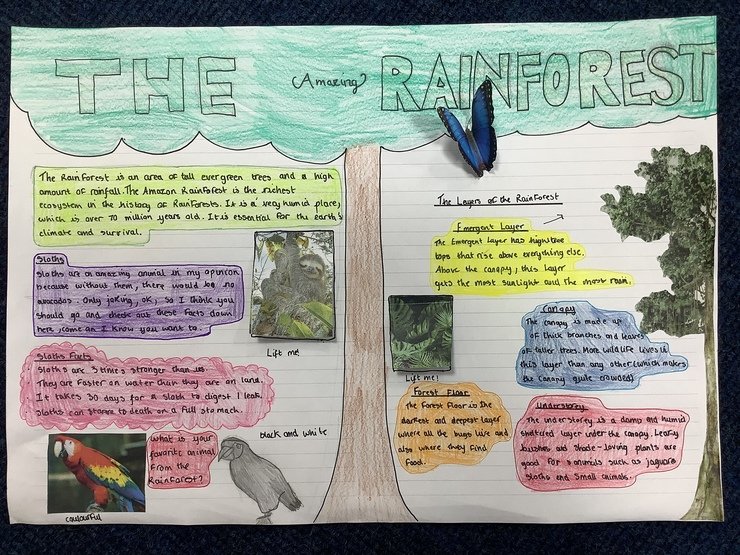 THE (Amazing) RAINFOREST
The Rainforest is an area of tall evergreen trees and a high
amount of rainfall. The Amazon Rainforest is the richest
ecosystem in the history of Rainforests. It is a very humid place,
which is over 70 million years old. It is essential for the earth's
climate and survival.
Sloths
Sloths are an amazing animal in my opinion
because without them, there would be no
avocados. Only joking, ok, so I think you
should go and check out these facts down
here, come on I know you want to.
Lift me!
Sloths Facts
Sloths are 3 times stronger than us.
They are faster on water than they are on land.
It takes 30 days for a sloth to digest 1 leaf.
Sloths can starve to death on a full stomach.
colourful
What is your
favorite animal
from the
Rainforest?
black and white
The Layers of the Rainforest
Emergent Layer
The Emergent layer has high tree
tops that rise above everything else.
Above the canopy, this layer
gets the most sunlight and the most rain.
Lift me!
Canopy
The canopy is made up
of thick branches and leaves
of taller trees. More wildlife lives in
this layer than any other (which makes
the canopy quite crowded)
Forest Floor
The Forest Floor is the
darkest and deepest layer
where all the bugs live and
also where they find
food.
Understorey
The understorey is a damp and humid
sheltered layer under the canopy. Leafy
bushes and shade-loving plants are
good for animals such as jaguars
sloths and small animals.